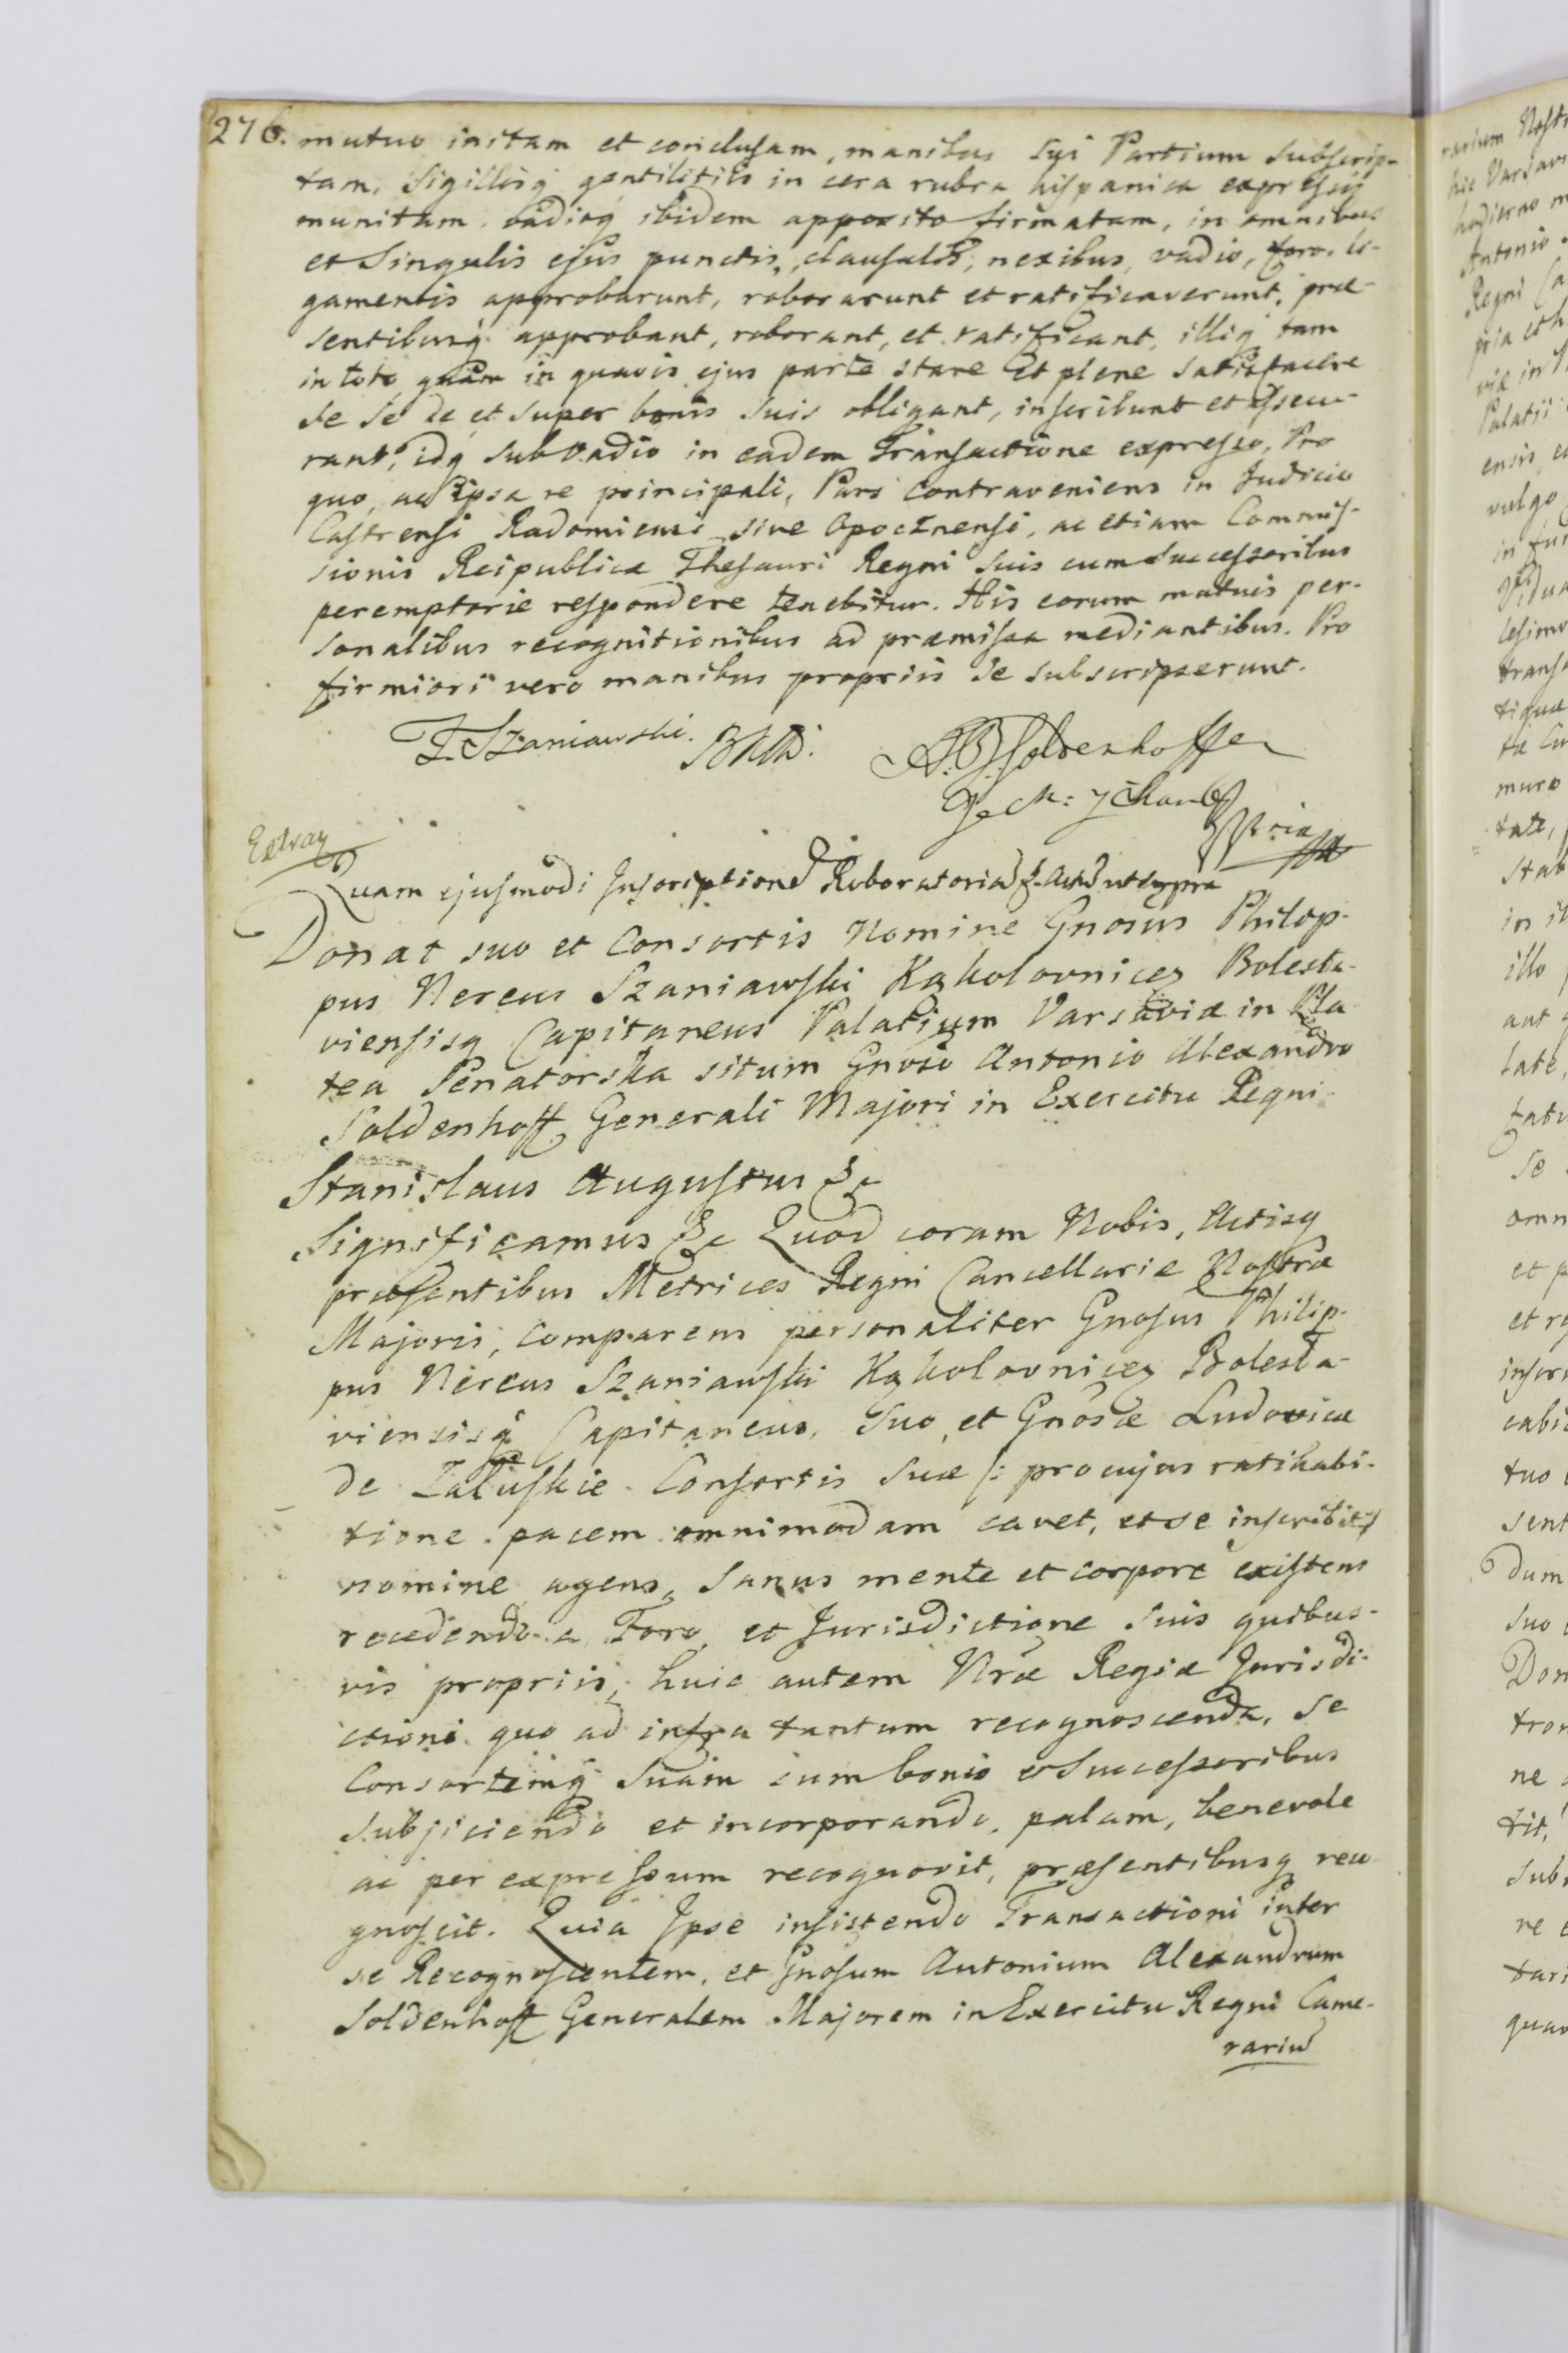 276. mutuo initam et conclusam, manibus sui Partium subscrip-
tam, Sigillisq gentilitiis in cera rubra hispanica expressis
munitam vadioq ibidem apposito firmatam, in omnibus
et Singulis ejus punctis, clausulis, nexibus, vadio, foro, li-
gamentis approbarunt, roborarunt et ratificaverunt, præ-
sentibusq approbant, roborant, et ratificant, illiq tam
in toto quam in quavis ejus parte stare et plene satisfacere
se se de et super bonis suis obligant, inscribunt et assecu-
rant, idq sub vadio in eadem Transactione expresso, Pro
quo, ac ipsa re principali, Pars contraveniens in Judicio
Castrensi Radomiensi sive Opocznensi, ac etiam Commis-
sionis Reipublicæ Thesauri Regni suis cum successoribus
peremptorie respondere tenebitur. His eorum mutuis per-
sonalibus recognitionibus ad præmissa mediantibus. Pro
firmiori vero manibus propriis se subscripserunt.
F. Szaniawski. A. Soldenhoff
G. M:
Extrad
Quam ejusmodi Inscriptioned Roboratoriad &. Actid ut supra
Donat suo et Consortis Nomine Gnosus Philip-
pus Nereus Szaniawski Kąkolovnicen Bolesta-
viensisq Capitaneus Palatium Varsaviæ in Pla-
tea Senatorska situm Gnoso Antonio Alexandro
Soldenhoff Generali Majori in Exercitu Regni
Stanislaus Augustus &c
Significamus &c Quod coram Nobis, Actisq
præsentibus Metrices Regni Cancellariæ Nostræ
Majoris, comparens personaliter Gnosus Philip-
pus Nereus Szaniawski Kąkolovnicen Bolesta-
viensisq Capitaneus, suo, et Gnosæ Ludovicæ
de Załuskie Consortis suæ /: pro cujus ratihabi-
tione pacem omnimodam cavet, et se inscribit :/
nomine agens, sanus mente et corpore existens
recedendo a Foro, et Jurisdictione suis quibus-
vis propriis, huic autem Nræ Regiæ Jurisdi-
ctioni quo ad infra tantum recognoscenda, se
Consortemq suam cum bonis et Successoribus
subjiciendo et incorporando, palam, benevole
ac per expressum recognovit, præsentibusq reco-
gnoscit. Quia Ipse insistendo Transactioni inter
se Recognoscentem, et Gnosum Antonium Alexandrum
Soldenhoff Generalem Majorem in Exercitu Regni Came-
rariu